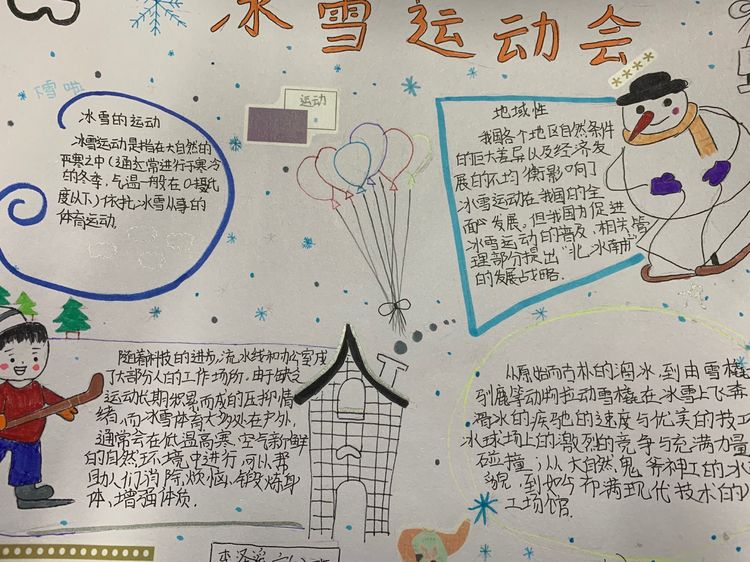 冰雪运动会
下雪啦
运动
冰雪的运动
冰雪运动是指在大自然的
严寒之中(通常进行于寒冷
的冬季,气温一般在0摄氏
度以下)依托冰雪从事的
体育运动。
地域性
我国各个地区自然条件
的巨大差异以及经济发
展的不均衡影响了
冰雪运动在我国的全
面发展。但我国为促进
冰雪运动的普及,相关管
理部分提出"北冰南
的发展战略.
随着科技的进步,流水线和办公室成
了大部分人的工作场所.由于缺乏
运动长期积累而成的压抑情
绪,而冰雪体育大多处在户外,
通常会在低温高寒、空气新鲜
的自然环境中进行,可以帮
助人们消除烦恼,锻炼身
体,增强体质.
从原始而古朴的滑冰,到由雪橇
到展翠动的我动雪橇在冰雪上飞奔
滑冰的疾驰的速度与优美的技工
冰球场上的激烈的竞争与充满力量
碰撞,从大自然鬼斧神工的冰
貌,到如今布满现代技术的
工场馆.